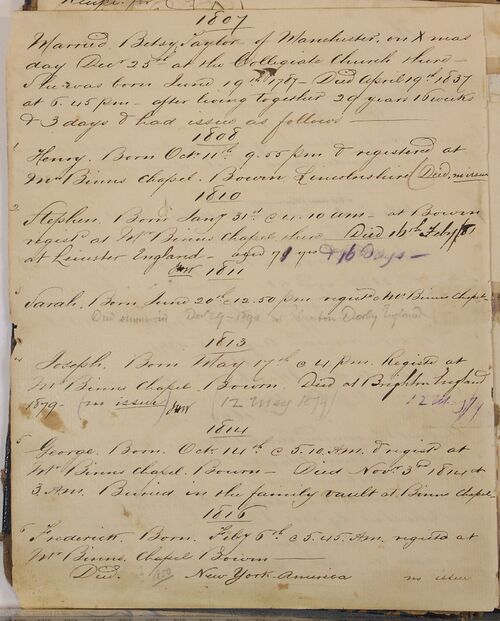 1807
Married. Betsy Taylor of Manchester, on Xmas
day Decr 25th at the Collegiate Church there—
She was born June 19th 1787— Died April 19th 1837
at 6.45 pm — after living together 29 years 16 weeks
& 3 days & had issue as follows —
1808
1 Henry. Born Oct 11th 9.55 pm. & registered at
Mr Binns Chapel. Bourn, Lincolnshire (Died, no issue
1810
2 Stephen. Born Jany 31st @ 4.10 am — at Bourn
regist at Mr Binns Chapel there. Died 16th Feby
at Leicester England — aged 71 yrs & 16 Days —
1811
3 Sarah. Born June 20th @ 12.50 pm regist at Mr Binns Chapel
Died Decr 29 - 1892 Derby England
1813
4 Joseph. Born May 17th @ 4 pm. Register at
Mr Binns Chapel. Bourn. Died at Brighton England
1879 — (no issue) (12 May 1879)
1814
5 George. Born. Oct 14th @ 5.10. A.M. & regist at
Mr Binns Chapel. Bourn — Died Novr 3rd 1814 at
3. A.M. Buried in the family vault at Binns Chapel
1816
6 Frederick. Born. Feby 6th @ 5.45. A.M. regist at
Mr Binns. Chapel Bourn —
Died. New York America no issue